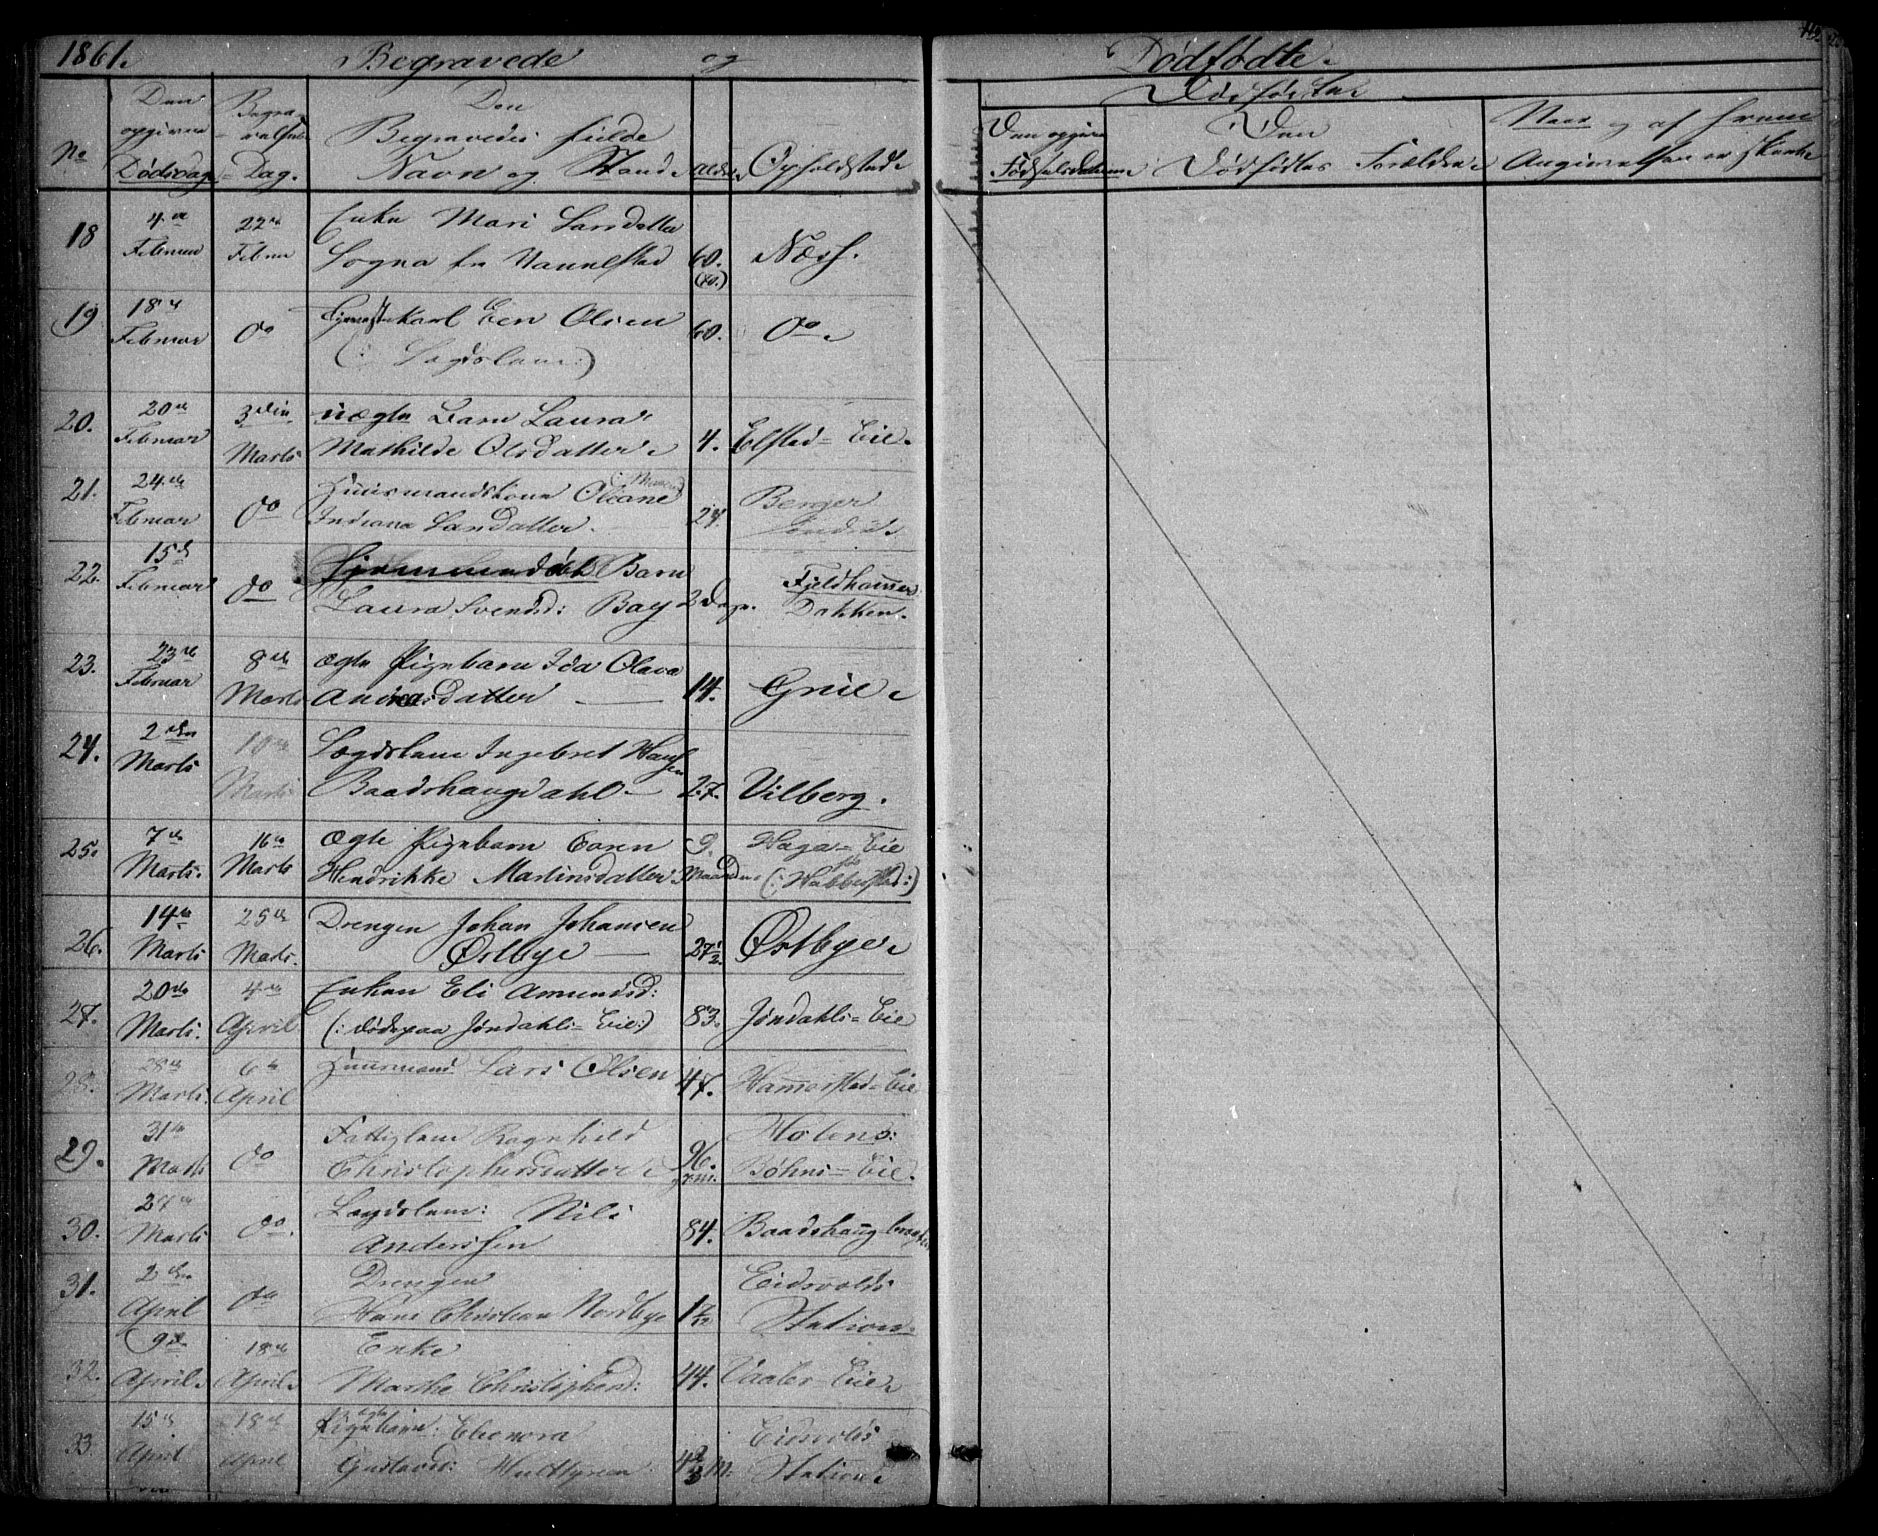 1861. Begravede og Dødfødte.
Den opgivne Dødsdag
Begravelses-Dag.
Den Begravedes fulde Navn og Stand
Alder
Opholdssted
Dødfødte
Den opgivne Fødselsdatum
Den Dødfødtes Forældre
Naar og af hvem Angivelsen er skeet
No
18 4de Februar 22de Februar Enke Mari Larsdatter
Logna fra 60. Næss.
19 18de Februar Do Karl Even Olsen
(: Lægdslem :) 60. Do
20. 20de Februar 3die Marts uægte Barn Laura
Mathilde Olsdatter 4. Elstad-Eie.
21. 24de Februar Do Huusmandskone Oleane
Indiana Larsdatter. 24. Berger
22. 15de Februar Do Barn
Laura Svendsd: Bay 2 Dage. Fjeldhammer
Dakken.
23. 23de Februar 8de Marts ægte Pigebarn Ida Olava
Andreasdatter 14. Grue
24. 2den Marts 10de Marts Lægdslem Ingebret Hansen
Baadshaugdahl 27. Vilberg.
25. 7de Marts. 16de Marts Ægte Pigebarn Karen
Hendrikke Martinsdatter 9 Maaneder Haga-Eie
26. 14de Marts 25de Marts. Drengen Johan Johansen
Østbye 27½ Østbye
27. 20de Marts. 4de April Enken Eli Amundsd:
(: døde paa Jøndahls-Eie:) 83. Jøndahls-Eie
28. 28de Marts. 6te April Huusmand Lars Olsen 47. Hamerstad-Eie
29. 31te Marts Do Fattiglem Ragnhild
Christophersdatter 96. Holens:
Bøhns-Eie.
30. 27de Marts Do. Lægdslem: Nils
Anderssen 84. Baadshaug
31. 2den April Do Drengen
Hans Christian Nordbye 1 Eidsvolds
Station
32. 9de April 18de April Enke
Marthe Christophersd: 44. Vaaler-Eie
33 15de April 18de April ægte Pigebarn: Eleonora
Gustavsd: 4⅔ M: Eidsvolds
Station